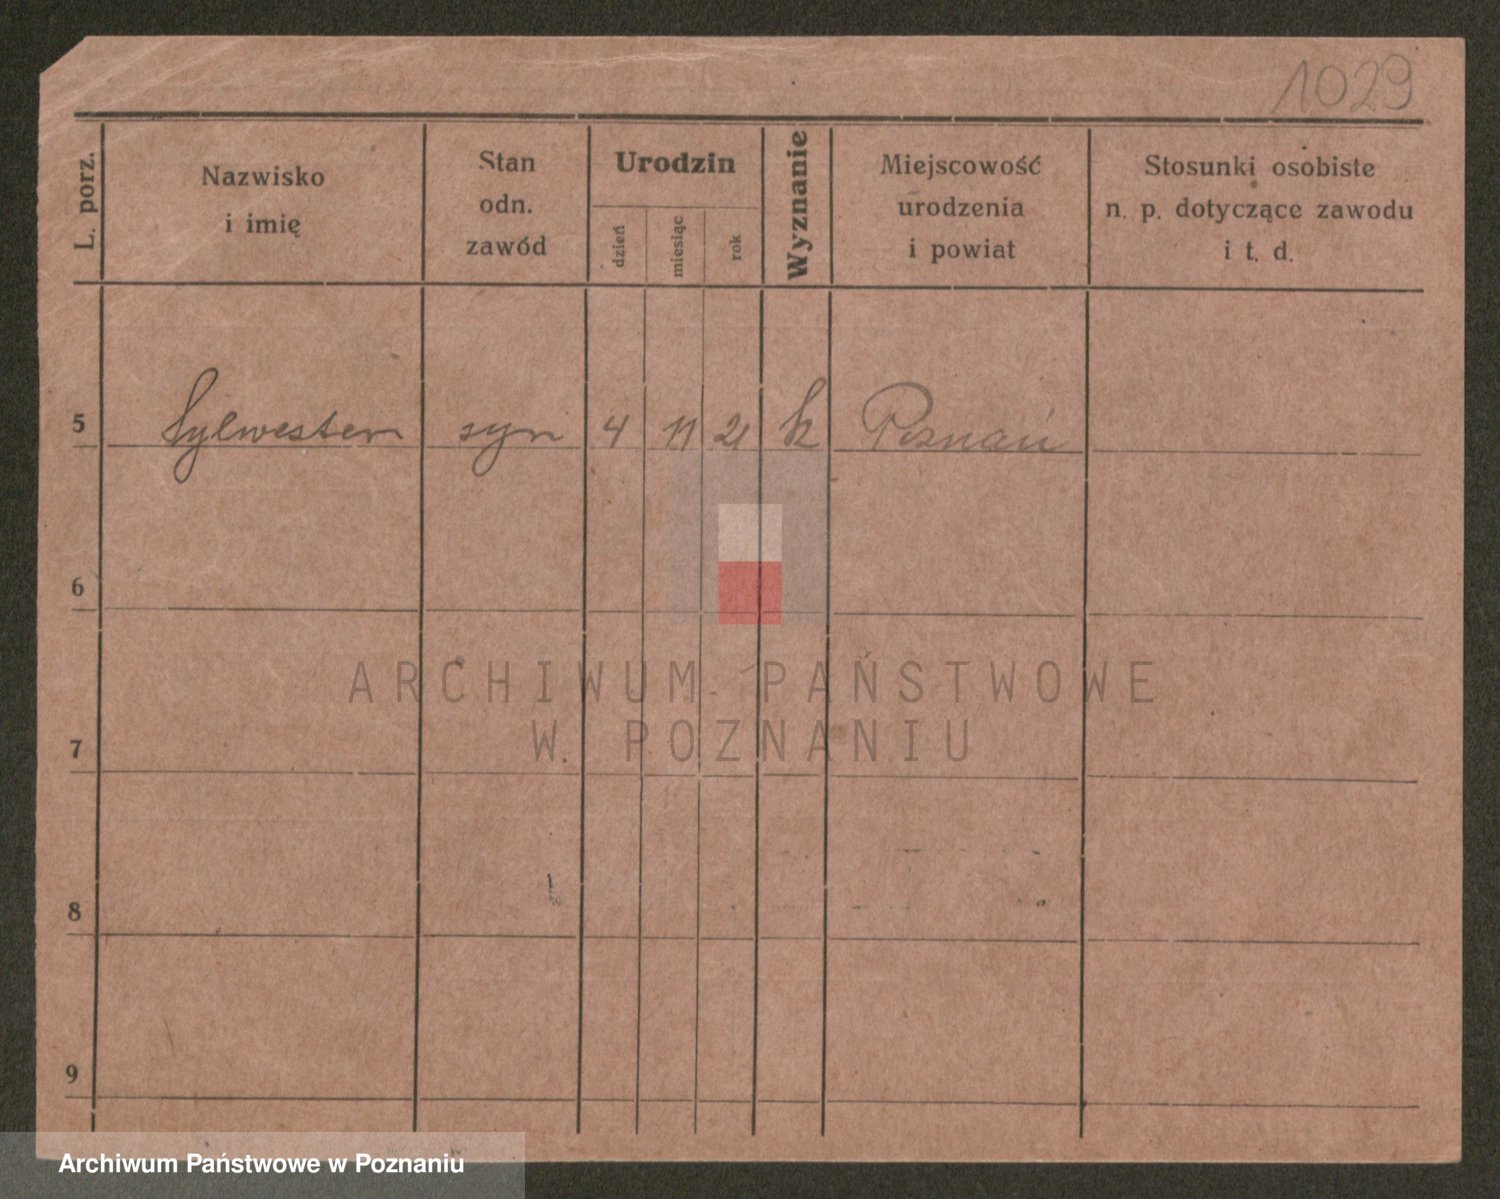 1029
L. porz.
Nazwisko
i imię
Stan
odn.
zawód
Urodzin
dzień
miesiąc
rok
Wyznanie
Miejscowość
urodzenia
i powiat
Stosunki osobiste
n. p. dotyczące zawodu
i t. d.
5 Sylwester syn 4 11 21 k Poznań
6
ARCHIWUM PAŃSTWOWE
W POZNANIU
7
8
9
Archiwum Państwowe w Poznaniu